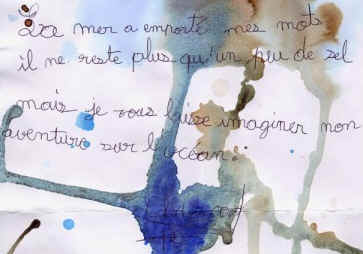 La mer a emporté mes mots
il ne reste plus qu'un peu de sel
mais je vous laisse imaginer mon
aventure sur l'océan.